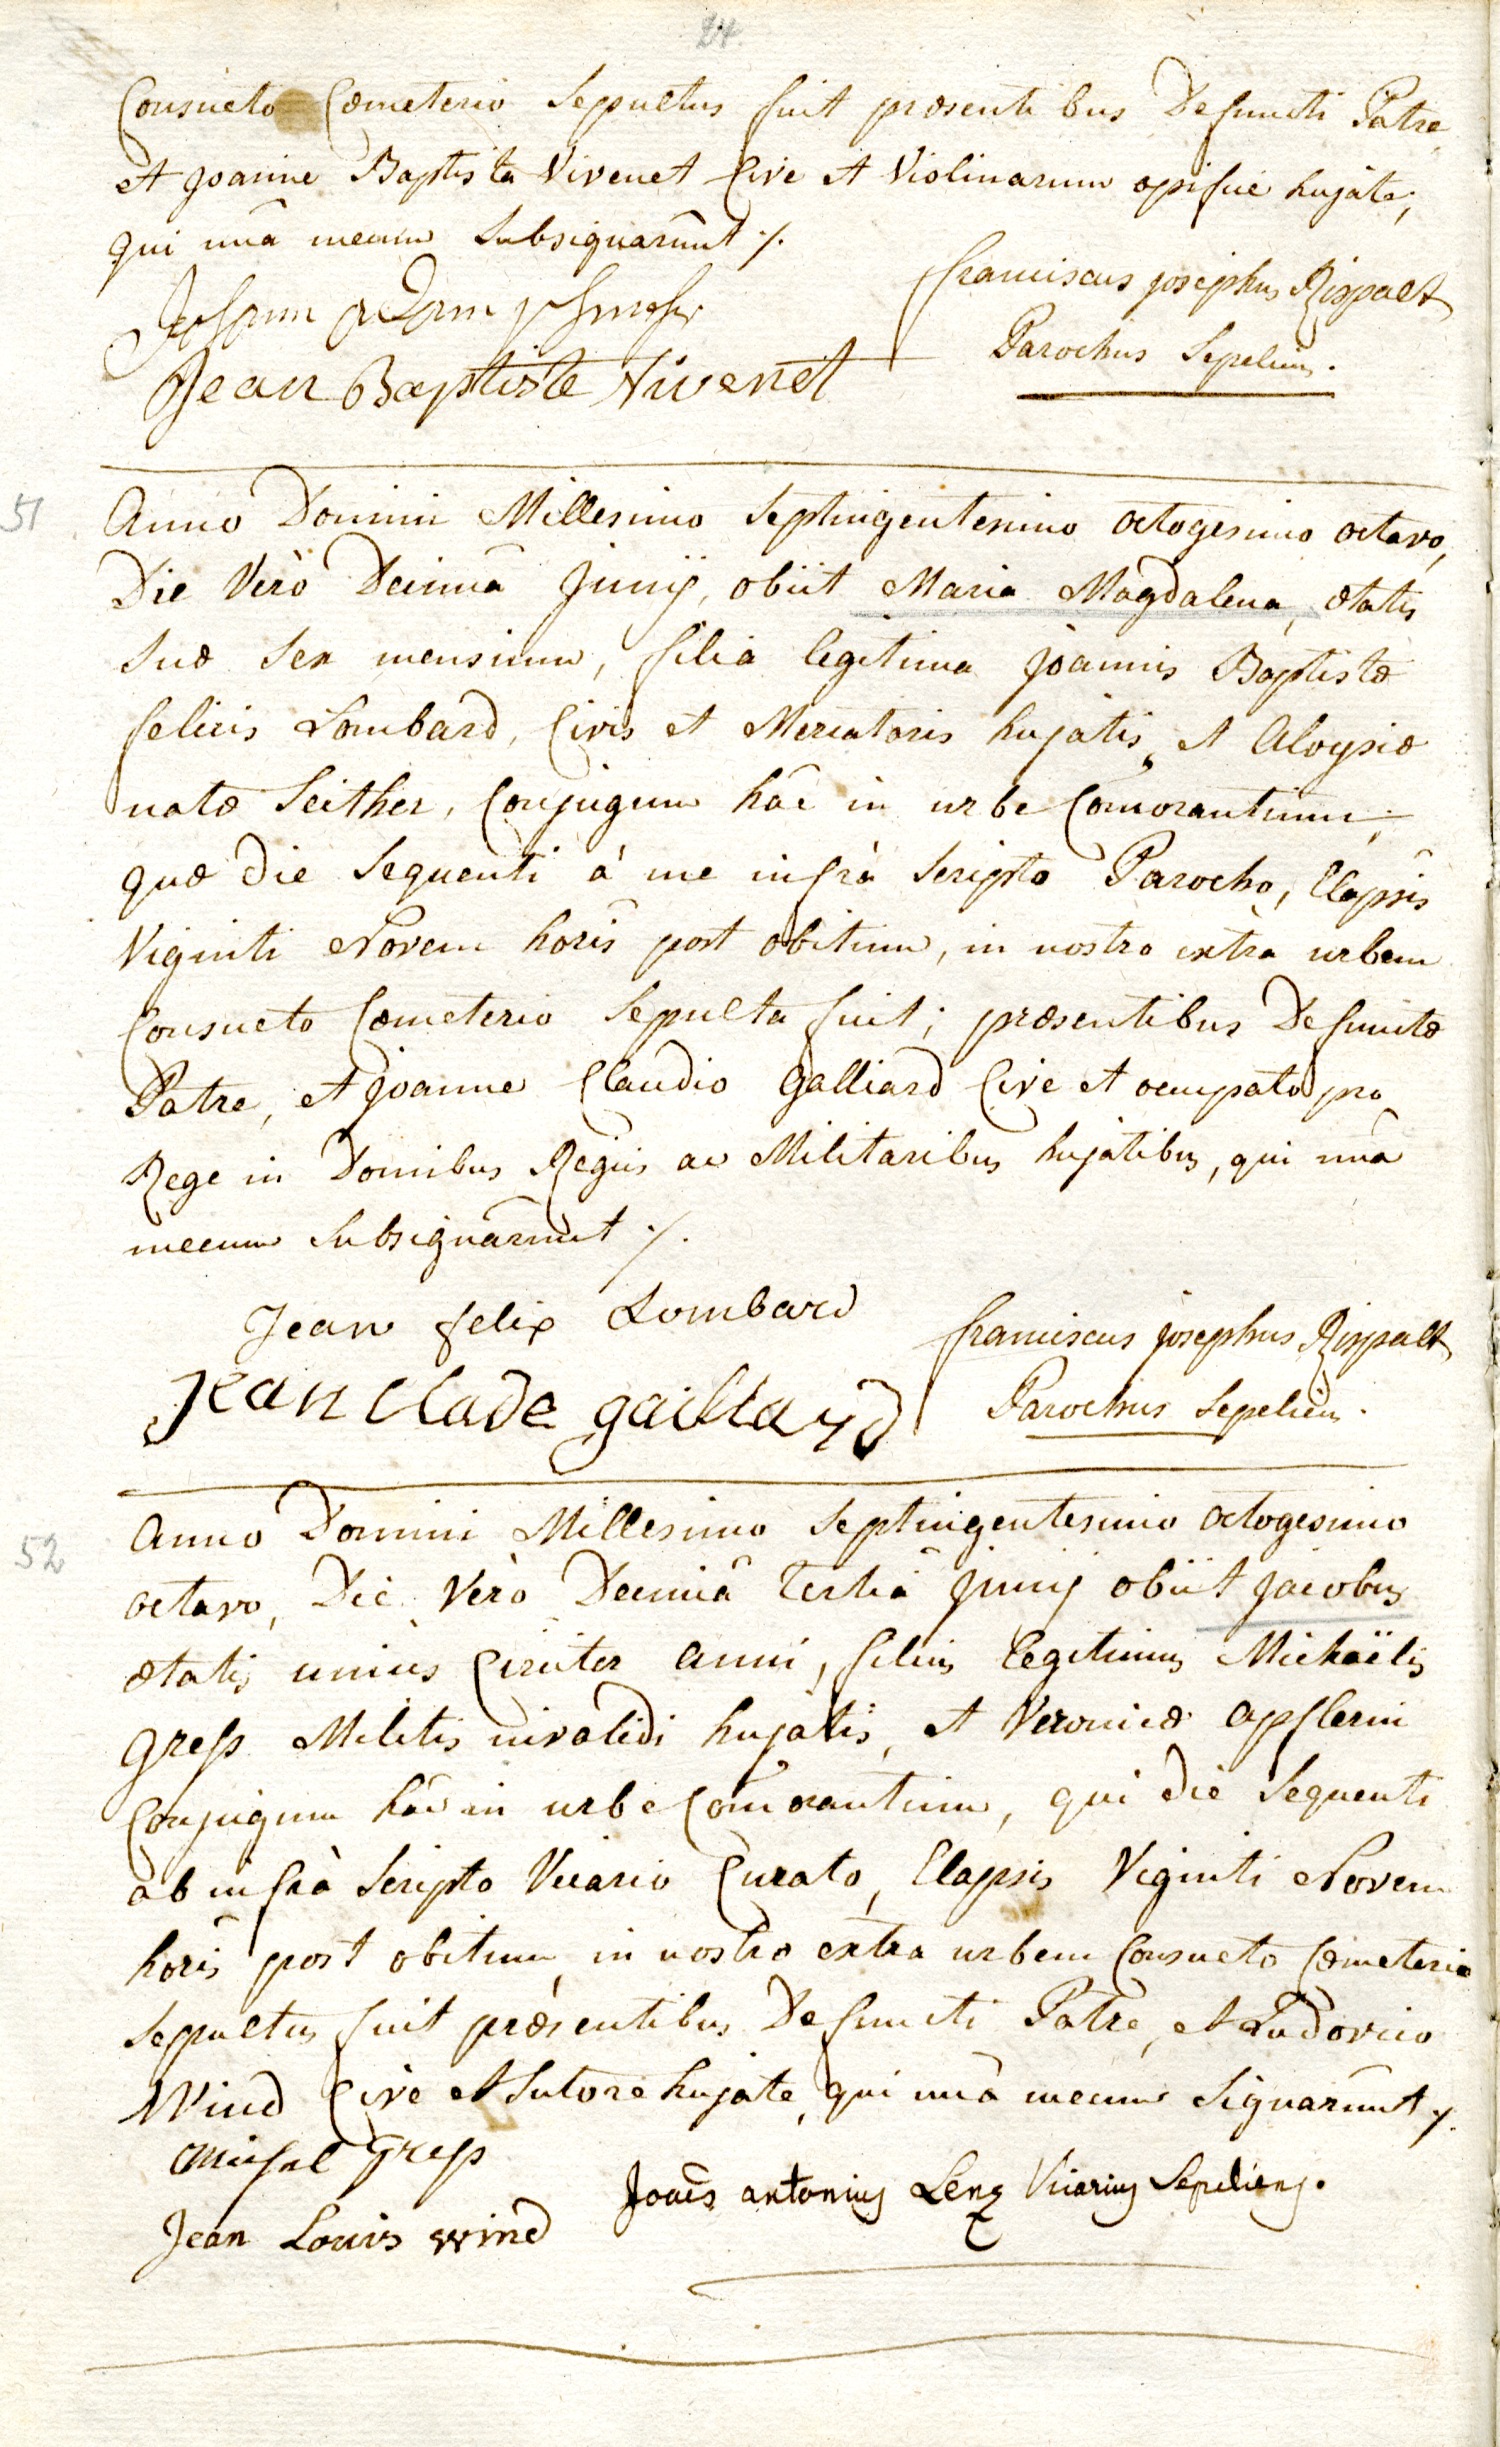 24
Consueto Cœmeterio Sepultus fuit præsentibus Defuncti Patre
et Joanne Baptista Vivenet Cive et Violinarum opifice hujate,
qui unâ mecum Subsignarûnt ./.
Johann Adam
franciscus josephus Rispalt
Jean Baptiste Vivenet
Parochus Sepeliens.
51
Anno Domini Millesimo Septingentesimo octogesimo octavo,
Die Verò Decimâ Junij, obiit Maria Magdalena, ætatis
Suæ Sex mensium, filia legitima Joannis Baptistæ
felicis Lombard, Civis et Mercatoris hujatis, et Aloysiæ
natæ Seither, Conjugum hâc in urbe Com̄orantium;
quæ die Sequenti à me infrà Scripto Parocho, Elapsis
Viginti Novem horis post obitum, in nostro extra urbem
Consueto Cœmeterio Sepulta fuit; præsentibus Defunctæ
Patre, et Joanne Claudio Galliard Cive et occupato pro
Rege in Domibus Regiis ac Militaribus hujatibus, qui unâ
mecum Subsignârunt ./.
Jean felix Lombard
franciscus josephus Rispalt
Jean Clade gaillard
Parochus Sepeliens.
52
Anno Domini Millesimo Septingentesimo octogesimo
octavo, Die Verò Decimâ tertiâ Junij obiit Jacobus
ætatis unius Circiter anni, filius legitimus Michaëlis
Gress Militis invalidi hujatis, et Veronicæ Apflerin
Conjugum hâc in urbe Com̄orantium, qui die Sequenti
ab infrà Scripto Vicario Curato, Elapsis Viginti Novem
horis post obitum, in nostro extra urbem Consueto Cœmeterio
Sepultus fuit præsentibus Defuncti Patre, et Ludovico
Wind Cive et Sutore hujate, qui unâ mecum Signarûnt ./.
Michel Gress
Joan̄es antonius Lenz Vicarius Sepeliens.
Jean Louis Wind